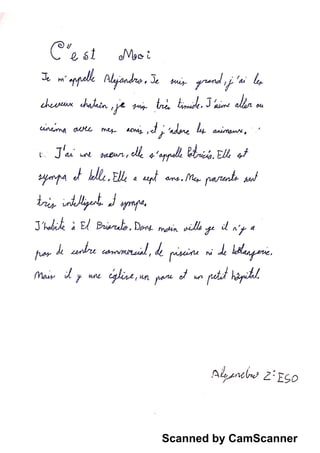 C'est Moi
Je m'appelle Alejandro. Je suis grand, j'ai les
cheveux chatain, je suis très timide. J'aime aller au
cinéma avec mes amis, et j'adore les animaux.
J'ai une sœur, elle s'appelle Patricia. Elle est
sympa et belle. Elle a sept ans. Mes parents sont
très intelligents et sympa.
J'habite à El Briareto. Dans main ville ye il n'y a
pas de centre commercial, de piscine ni de boulangerie.
Mais il y une église, un parc et un petit hôpital.
Alejandro 2º ESO
Scanned by CamScanner